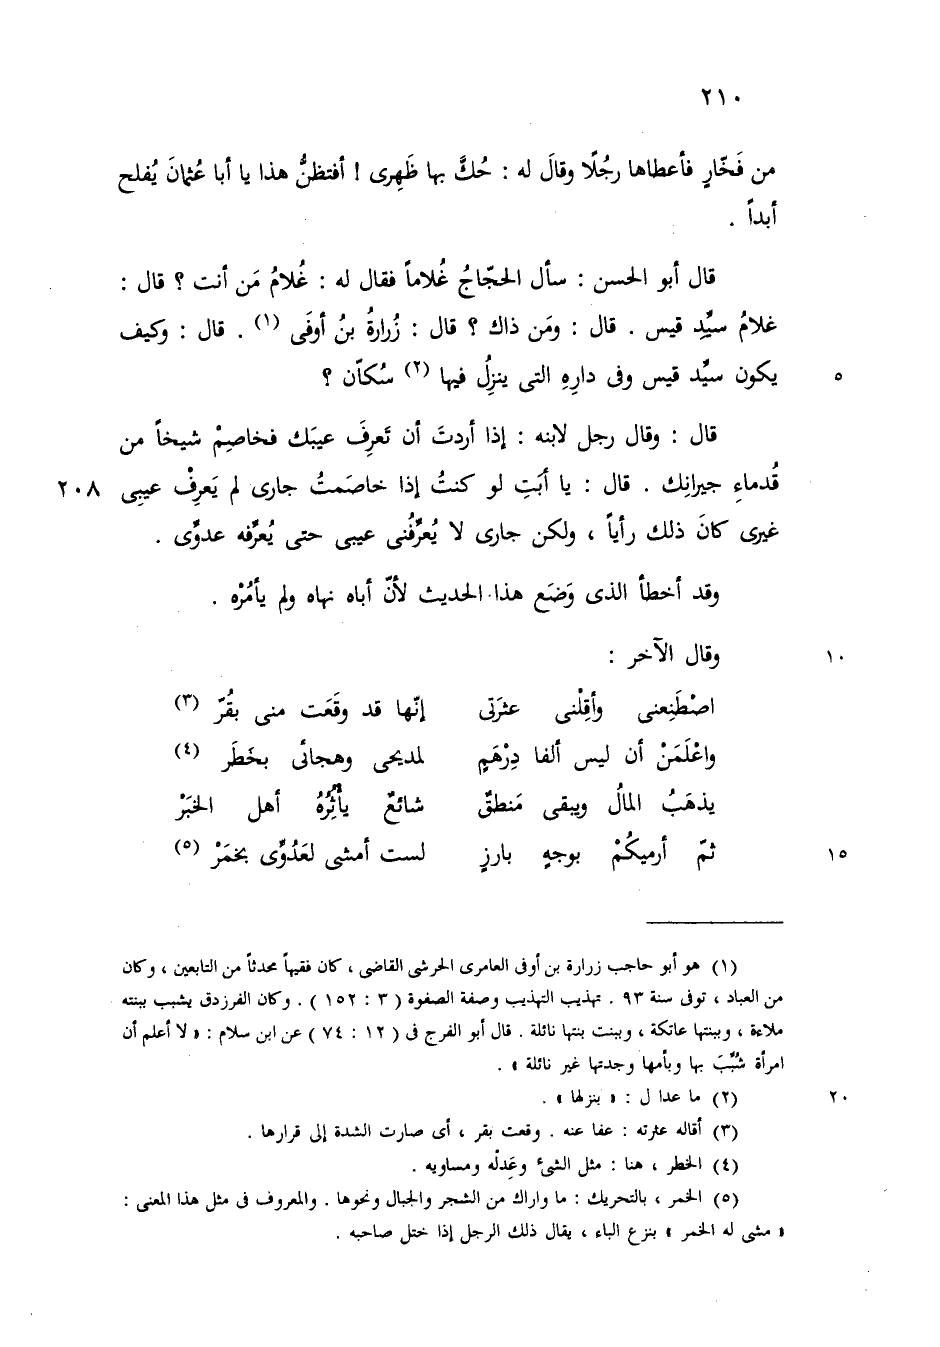 ٢١٠
من فَخّارٍ فأعطاها رجُلًا وقالَ له : حُكَّ بها ظَهرِى ! أفتظنُّ هذا يا أبا عُثمانَ يُفلح
أبداً .
قال أبو الحسن : سأل الحجّاجُ غُلاماً فقال له : غُلامُ مَن أنت ؟ قال :
غلامُ سيِّدِ قيس . قال : ومَن ذاك ؟ قال : زُرارةُ بنُ أوفَى (١) . قال : وكيف
يكون سيِّد قيس وفى دارِهِ التى ينزِلُ فيها (٢) سُكاّن ؟
٥
قال : وقال رجل لابنه : إذا أردتَ أن تَعرِفَ عيبَك فخاصِمْ شيخاً من
قُدماءِ جيرانِك . قال : يا أبَتِ لو كنتُ إذا خاصَمتُ جارى لم يَعرِفْ عيبِى
٢٠٨
غيرى كانَ ذلك رأياً ، ولكن جارى لا يُعرِّفُنى عيبى حتى يُعرِّفه عدوِّى .
وقد أخطأ الذى وَضَع هذا الحديث لأنّ أباه نهاه ولم يأمُرْه .
وقال الآخر :
١٠
اصْطَنِعنى وأقِلْنى عثرَتى إنّها قد وقَعَت منى بقُرّ (٣)
واعْلَمَنْ أن ليس ألفا دِرْهَمٍ لمديحى وهجائى بخَطَر (٤)
يذهَبُ المالُ ويبقى مَنطقٌ شائعٌ يأثِرُهُ أهل الخبَرْ
ثمّ أرميكُمْ بوجهٍ بارزٍ لست أمشى لعَدُوِّى بخمَرْ (٥)
١٥
(١) هو أبو حاجب زرارة بن أوفى العامرى الحرشى القاضى ، كان فقيهاً محدثاً من التابعين ، وكان
من العباد ، توفى سنة ٩٣ . تهذيب التهذيب وصفة الصفوة ( ٣ : ١٥٢ ) . وكان الفرزدق يشبب ببنته
ملاءة ، وببنتها عاتكة ، وببنت بنتها نائلة . قال أبو الفرج فى ( ١٢ : ٧٤ ) عن ابن سلام : « لا أعلم أن
امرأة شُبِّبَ بها وبأمها وجدتها غير نائلة » .
(٢) ما عدا ل : « ينزلها » .
٢٠
(٣) أقاله عثرته : عفا عنه . وقعت بقر ، أى صارت الشدة إلى قرارها .
(٤) الخطر ، هنا : مثل الشىء وعَدِلْه ومساويه .
(٥) الخمر ، بالتحريك : ما واراك من الشجر والجبال ونحوها . والمعروف فى مثل هذا المعنى :
« مشى له الخمر » بنزع الباء ، يقال ذلك الرجل إذا ختل صاحبه .